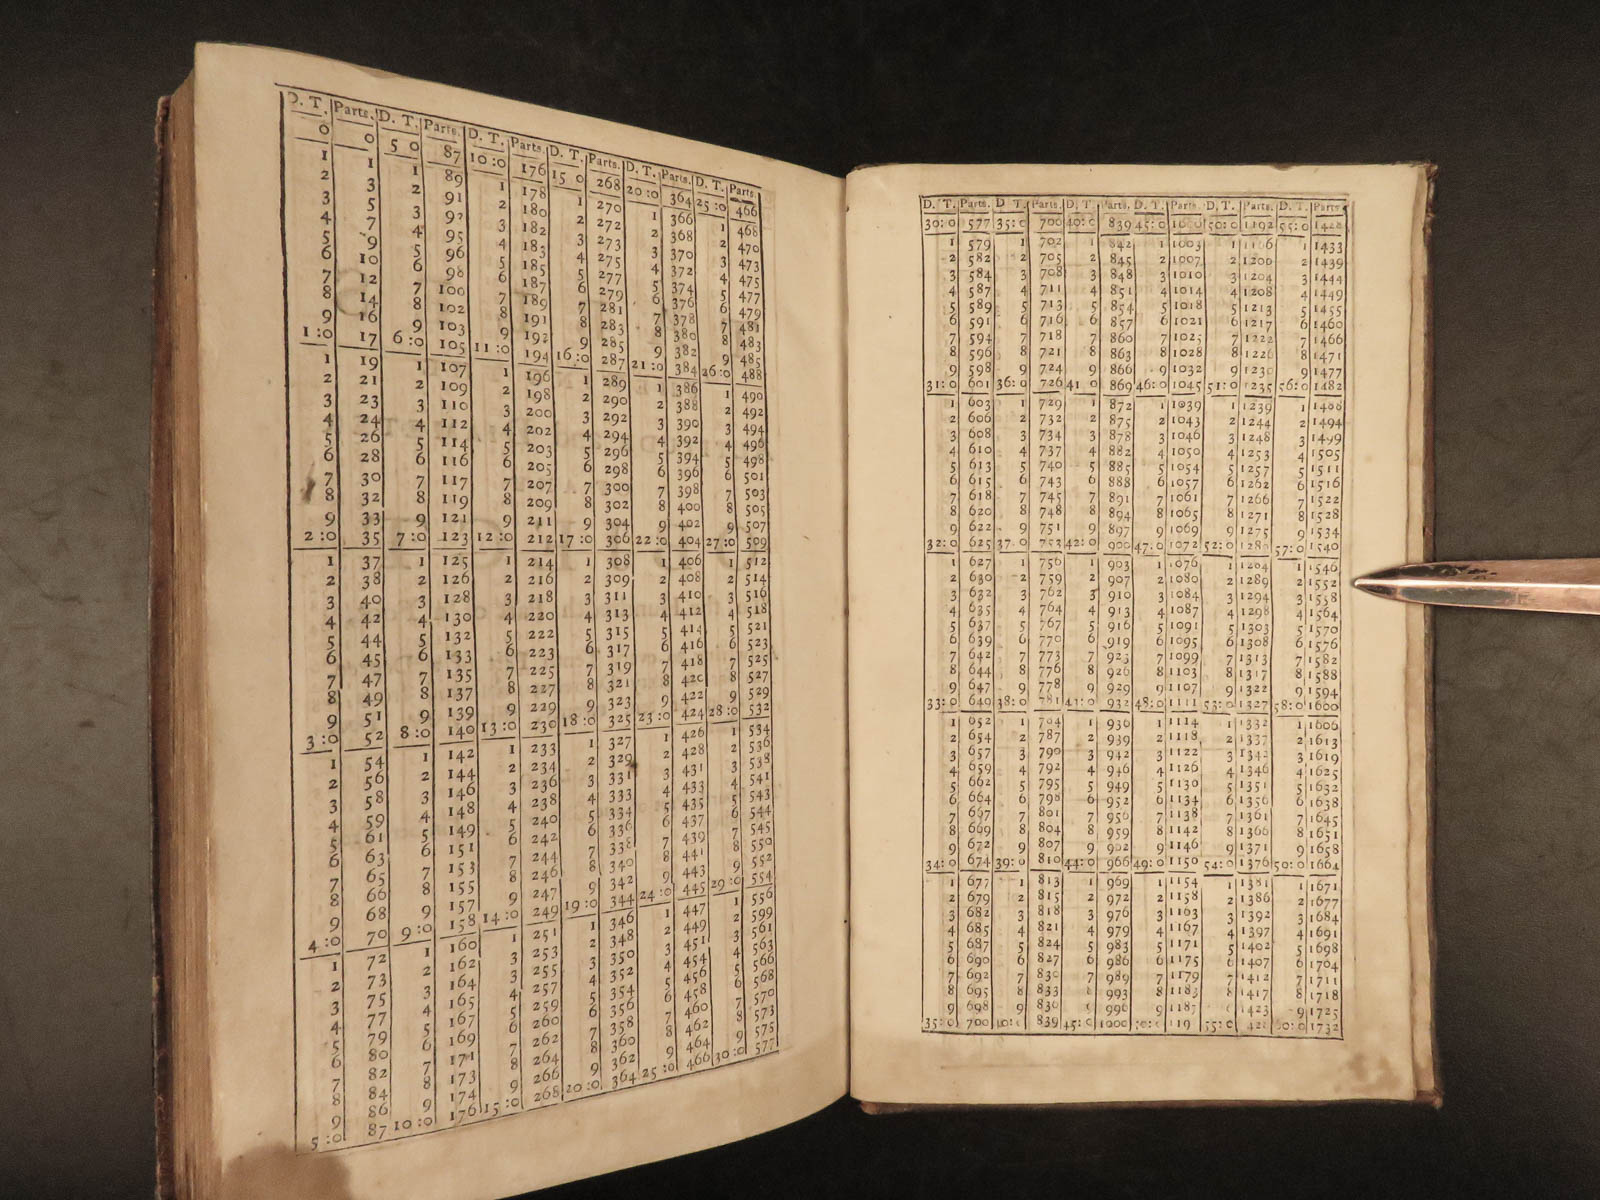 D. T. Parts. D. T. Parts. D. T. Parts. D. T. Parts. D. T. Parts. D. T. Parts.
0 0 5 0 87 10:0 176 15 0 268 20:0 364 25:0 466
1 1 1 89 1 178 1 270 1 366 1 468
2 3 2 91 2 180 2 272 2 368 2 470
3 5 3 93 3 182 3 273 3 370 3 473
4 7 4 95 4 183 4 275 4 372 4 475
5 9 5 96 5 185 5 277 5 374 5 477
6 10 6 98 6 187 6 279 6 376 6 479
7 12 7 100 7 189 7 281 7 378 7 481
8 14 8 102 8 191 8 283 8 380 8 483
9 16 9 103 9 192 9 285 9 382 9 485
1:0 17 6:0 105 11:0 194 16:0 287 21:0 384 26:0 488
1 19 1 107 1 196 1 289 1 386 1 490
2 21 2 109 2 198 2 290 2 388 2 492
3 23 3 110 3 200 3 292 3 390 3 494
4 24 4 112 4 202 4 294 4 392 4 496
5 26 5 114 5 203 5 296 5 394 5 498
6 28 6 116 6 205 6 298 6 396 6 501
7 30 7 117 7 207 7 300 7 398 7 503
8 32 8 119 8 209 8 302 8 400 8 505
9 33 9 121 9 211 9 304 9 402 9 507
2:0 35 7:0 123 12:0 212 17:0 306 22:0 404 27:0 509
1 37 1 125 1 214 1 308 1 406 1 512
2 38 2 126 2 216 2 309 2 408 2 514
3 40 3 128 3 218 3 311 3 410 3 516
4 42 4 130 4 220 4 313 4 412 4 518
5 44 5 132 5 222 5 315 5 414 5 521
6 45 6 133 6 223 6 317 6 416 6 523
7 47 7 135 7 225 7 319 7 418 7 525
8 49 8 137 8 227 8 321 8 420 8 527
9 51 9 139 9 229 9 323 9 422 9 529
3:0 52 8:0 140 13:0 230 18:0 325 23:0 424 28:0 532
1 54 1 142 1 233 1 327 1 426 1 534
2 56 2 144 2 234 2 329 2 428 2 536
3 58 3 146 3 236 3 331 3 431 3 538
4 59 4 148 4 238 4 333 4 433 4 541
5 61 5 149 5 240 5 334 5 435 5 543
6 63 6 151 6 242 6 336 6 437 6 544
7 65 7 153 7 244 7 338 7 439 7 545
8 66 8 155 8 246 8 340 8 441 8 550
9 68 9 157 9 247 9 342 9 443 9 552
4:0 70 9:0 158 14:0 249 19:0 344 24:0 445 29:0 554
1 72 1 160 1 251 1 346 1 447 1 556
2 73 2 162 2 253 2 348 2 449 2 599
3 75 3 164 3 255 3 350 3 451 3 561
4 77 4 165 4 257 4 352 4 454 4 563
5 79 5 167 5 259 5 354 5 456 5 566
6 80 6 169 6 260 6 356 6 458 6 568
7 82 7 171 7 262 7 358 7 460 7 570
8 84 8 173 8 264 8 360 8 462 8 573
9 86 9 174 9 266 9 362 9 464 9 575
5:0 87 10:0 176 15:0 268 20:0 364 25:0 466 30:0 577
D. T. Parts. D T. Parts. D. T. Parts. D. T. Parts. D. T. Parts. D. T. Parts
30:0 577 35:0 700 40:0 839 45:0 50:0 1192 55:0 1428
1 579 1 702 1 842 1 1003 1 1 1433
2 582 2 705 2 845 2 1007 2 1200 2 1439
3 584 3 708 3 848 3 1010 3 1204 3 1444
4 587 4 711 4 851 4 1014 4 1208 4 1449
5 589 5 713 5 854 5 1018 5 1213 5 1455
6 591 6 716 6 857 6 1021 6 1217 6 1460
7 594 7 718 7 860 7 1025 7 1222 7 1466
8 596 8 721 8 863 8 1028 8 1226 8 1471
9 598 9 724 9 866 9 1032 9 1230 9 1477
31:0 601 36:0 726 41 0 869 46:0 1045 51:0 1235 56:0 1482
1 603 1 729 1 872 1 1039 1 1239 1 1488
2 606 2 732 2 875 2 1043 2 1244 2 1494
3 608 3 734 3 878 3 1046 3 1248 3 1499
4 610 4 737 4 882 4 1050 4 1253 4 1505
5 613 5 740 5 885 5 1054 5 1257 5 1511
6 615 6 743 6 888 6 1057 6 1262 6 1516
7 618 7 745 7 891 7 1061 7 1266 7 1522
8 620 8 748 8 894 8 1065 8 1271 8 1528
9 622 9 751 9 897 9 1069 9 1275 9 1534
32:0 625 37:0 753 42:0 900 47:0 1072 52:0 1280 57:0 1540
1 627 1 756 1 903 1 1076 1 1 1546
2 630 2 759 2 907 2 1080 2 1289 2 1552
3 632 3 762 3 910 3 1084 3 1294 3 1558
4 635 4 764 4 913 4 1087 4 1298 4 1564
5 637 5 767 5 916 5 1091 5 1303 5 1570
6 639 6 770 6 919 6 1095 6 1308 6 1576
7 642 7 773 7 923 7 1099 7 1313 7 1582
8 644 8 776 8 926 8 1103 8 1317 8 1588
9 647 9 778 9 929 9 1107 9 1322 9 1594
33:0 649 38:0 781 43:0 932 48:0 1111 53:0 1327 58:0 1600
1 652 1 784 1 936 1 1114 1 1332 1 1606
2 654 2 787 2 939 2 1118 2 1337 2 1613
3 657 3 790 3 942 3 1122 3 1342 3 1619
4 659 4 792 4 946 4 1126 4 1346 4 1625
5 662 5 795 5 949 5 1130 5 1351 5 1632
6 664 6 798 6 952 6 1134 6 1356 6 1638
7 667 7 801 7 956 7 1138 7 1361 7 1645
8 669 8 804 8 959 8 1142 8 1366 8 1651
9 672 9 807 9 962 9 1146 9 1371 9 1658
34:0 674 39:0 810 44:0 966 49:0 1150 54:0 1376 1664
1 677 1 813 1 969 1 1154 1 1381 1 1671
2 679 2 815 2 972 2 1158 2 1386 2 1677
3 682 3 818 3 976 3 1163 3 1392 3 1684
4 685 4 821 4 979 4 1167 4 1397 4 1691
5 687 5 824 5 983 5 1171 5 1402 5 1698
6 690 6 827 6 986 6 1175 6 1407 6 1704
7 692 7 830 7 989 7 1179 7 1412 7 1711
8 695 8 833 8 993 8 1183 8 1417 8 1718
9 698 9 836 9 996 9 1187 1423 9 1725
35:0 700 839 45: 1000 55:0 1732